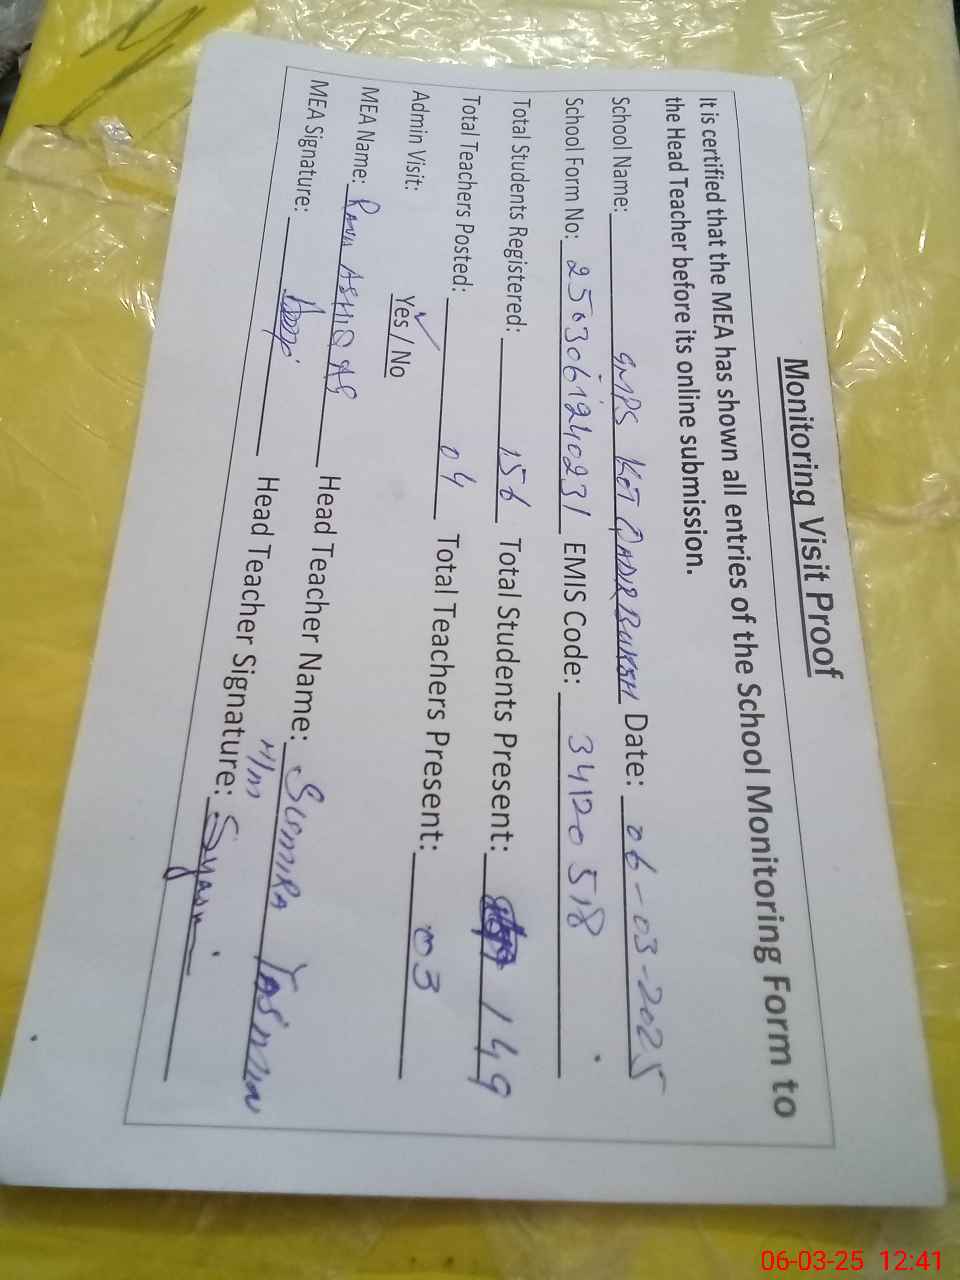 Monitoring Visit Proof
It is certified that the MEA has shown all entries of the School Monitoring Form to
the Head Teacher before its online submission.
School Name: GMPS KOT QADIR BUKSH Date: 06-03-2025
School Form No: 2503061240231 EMIS Code: 34120518
Total Students Registered: 156 Total Students Present: 149
Total Teachers Posted: 04 Total Teachers Present: 03
Admin Visit: Yes / No
MEA Name: RANA ASHFAQ Head Teacher Name: Sumira Yasmin
MEA Signature: Head Teacher Signature: Syasmin
H/M
06-03-25 12:41